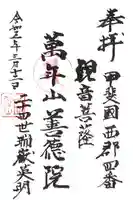 奉拝 甲斐国西郡四番
観音菩薩
萬年山善徳院
令和三年三月十一日
二十四世